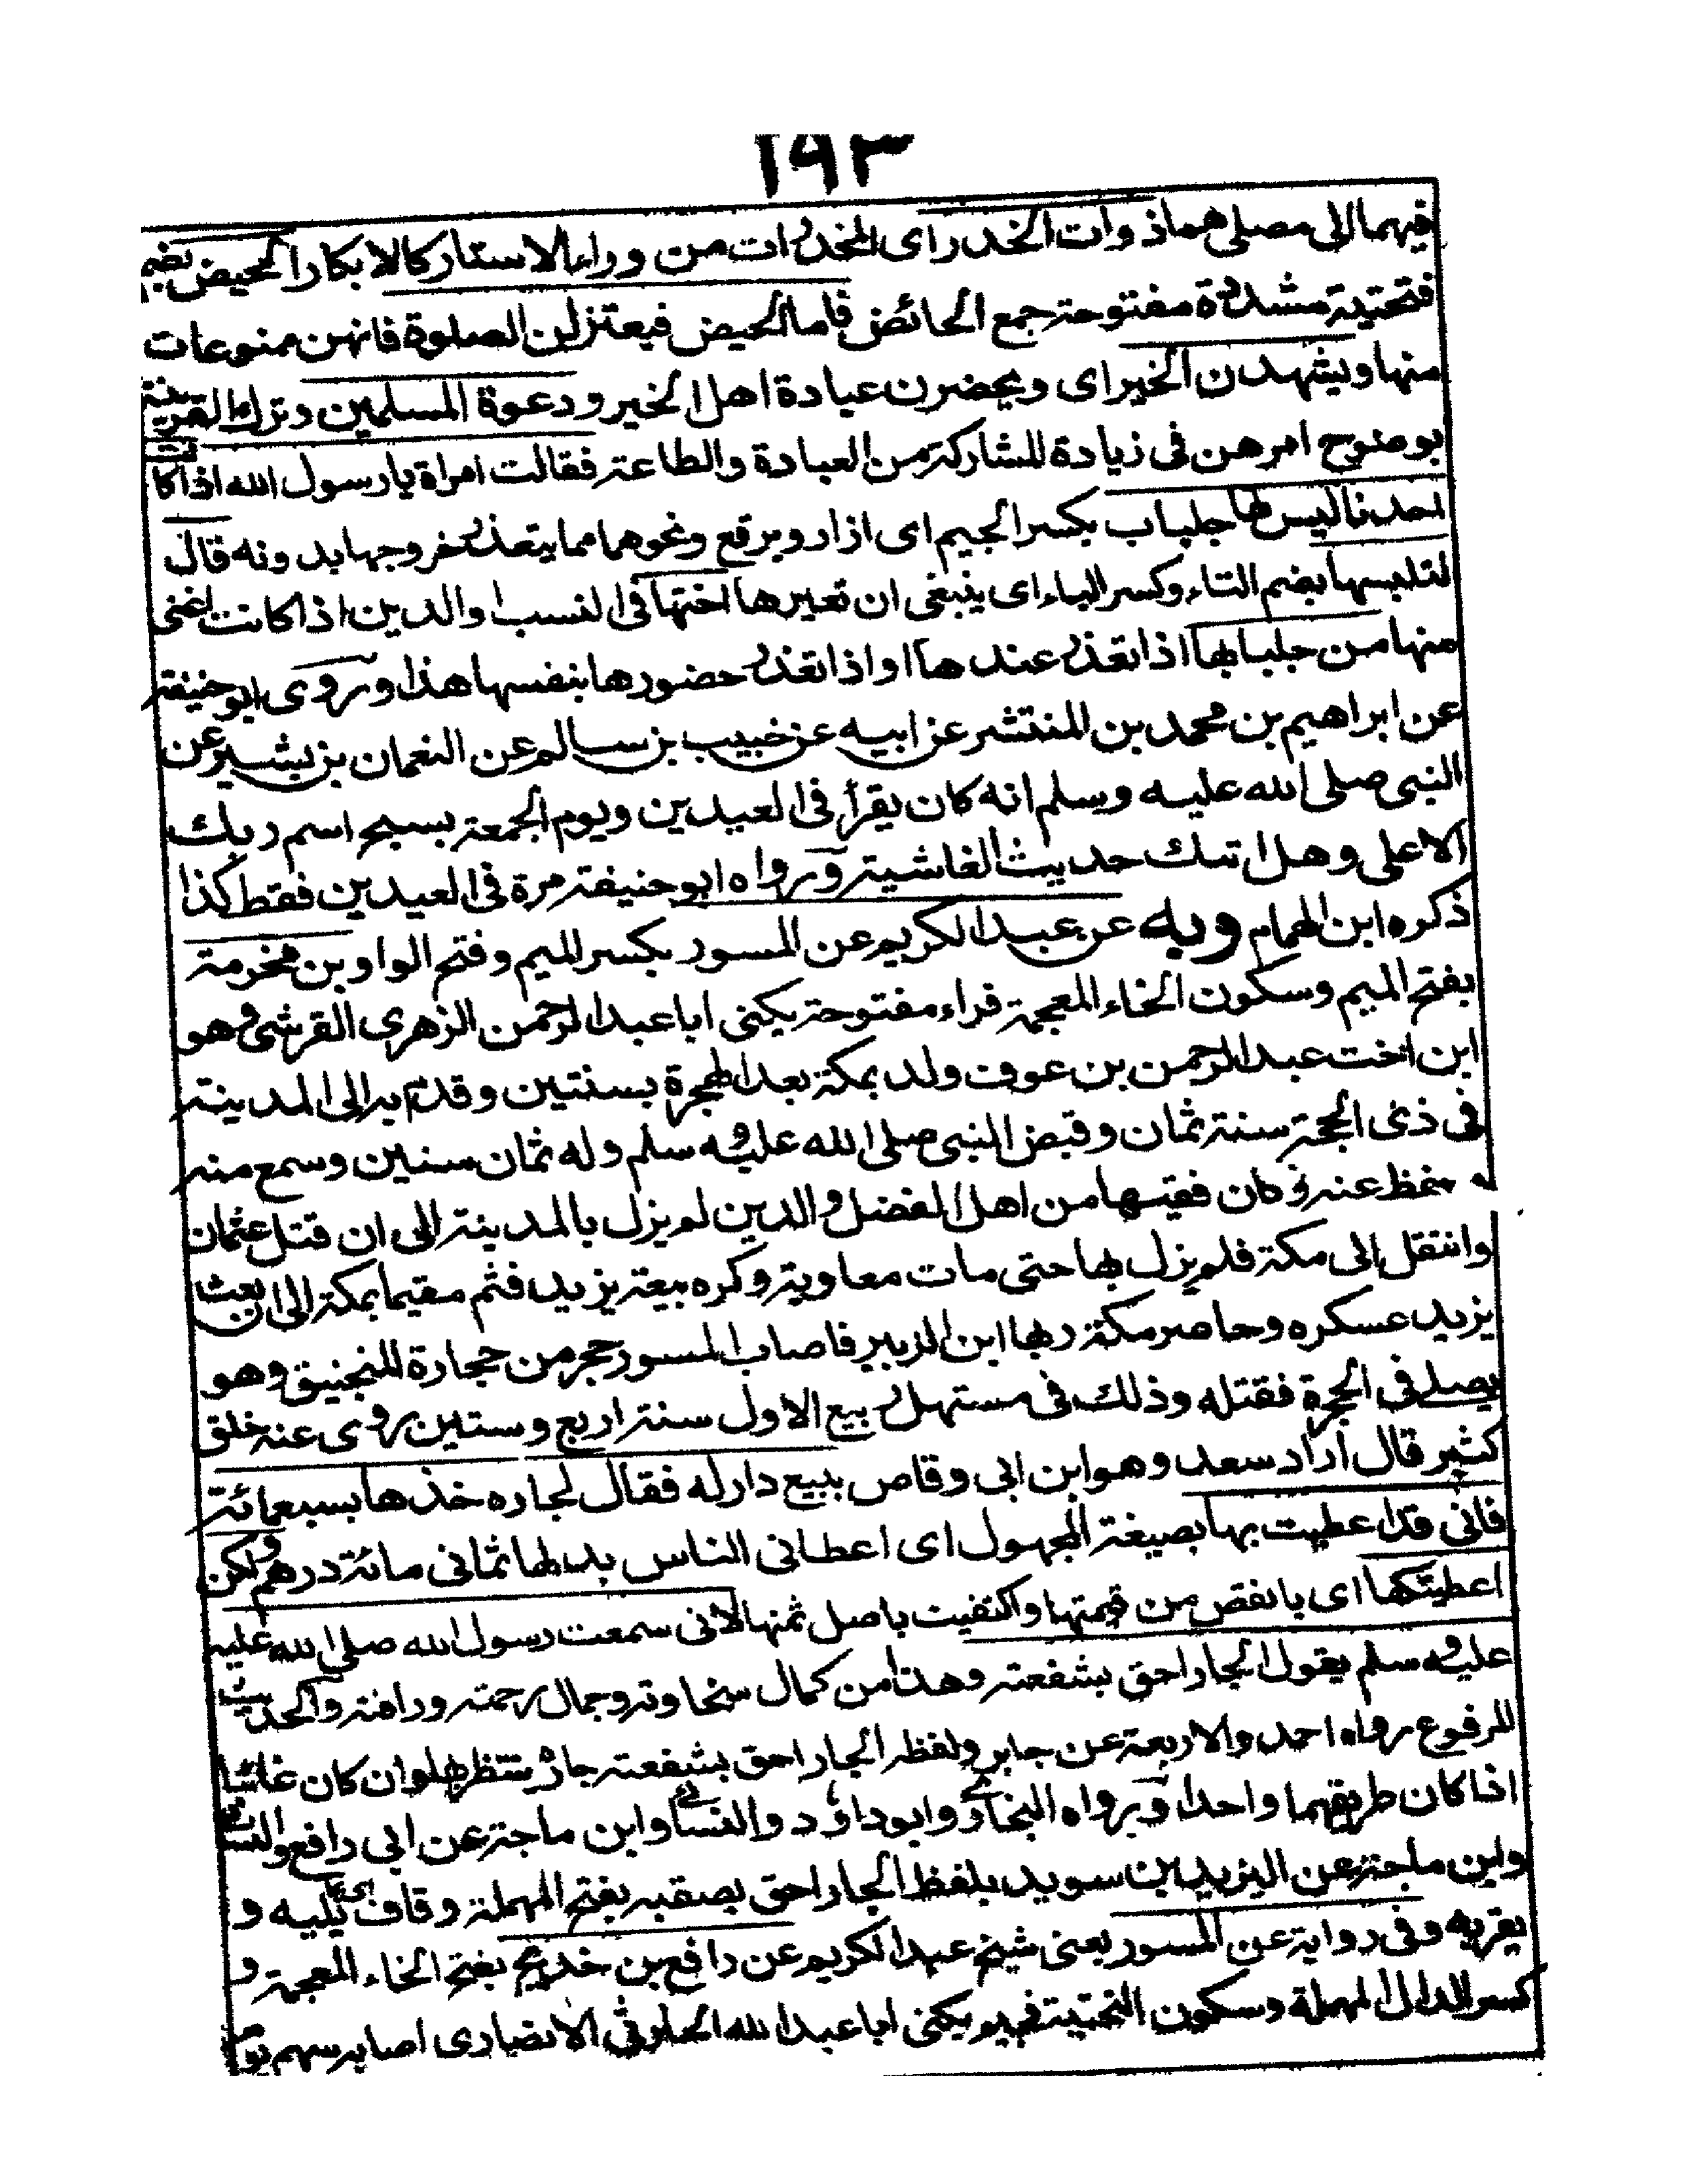 ١٩٣
فيهما الى مصلى هماذ وات الخدر اى المخدرات من وراء الاستار كالابكار الحيض بضم
فتحتية مشددة مفتوحة جمع الحائض فاما الحيض فيعتزلن الصلوة فانهن ممنوعات
منها ويشهدن الخير اى ويحضرن عبادة اهل الخير ودعوة المسلمين وترك القرينة
بوضوح امرهن فى زيادة المشاركة من العبادة والطاعة فقالت امراة يا رسول الله اذا كانت
احدنا ليس لها جلباب بكسر الجيم اى ازار وبرقع ونحوهما مما يتعذر خروجها بدونه قال
لتلبسها بضم التاء وكسر الباء اى ينبغى ان تعيرها اختها فى النسب او الدين اذا كانت اغنى
منها من جلبابها اذا تعذر عندها او اذا تعذر حضورها بنفسها هذا وروى ابو حنيفة
عن ابراهيم بن محمد بن المنتشر عن ابيه عن خبيب بن سالم عن النعمان بن بشير عن
النبى صلى الله عليه وسلم انه كان يقرأ فى العيدين ويوم الجمعة بسبح اسم ربك
الاعلى وهل اتىك حديث الغاشية ورواه ابو حنيفة مرة فى العيدين فقط كذا
ذكره ابن الهمام وبه عن عبد الكريم عن المسور بكسر الميم وفتح الواو بن مخرمة
بفتح الميم وسكون الخاء المعجمة فراء مفتوحة يكنى ابا عبد الرحمن الزهرى القرشى وهو
ابن اخت عبد الرحمن بن عوف ولد بمكة بعد الهجرة بسنتين وقدم به الى المدينة
فى ذى الحجة سنة ثمان وقبض النبى صلى الله عليه وسلم وله ثمان سنين وسمع منه
حفظ عنه وكان فقيها من اهل الفضل والدين لم يزل بالمدينة الى ان قتل عثمان
وانتقل الى مكة فلم يزل بها حتى مات معاوية وكره بيعة يزيد فثم مقيما بمكة الى ان بعث
يزيد عسكره وحاصر مكة وبها ابن الزبير فاصاب المسور حجر من حجارة المنجنيق وهو
يصلى فى الحجرة فقتله وذلك فى مستهل ربيع الاول سنة اربع وستين روى عنه خلق
كثير قال اراد سعد وهو ابن ابى وقاص ببيع دار له فقال لجاره خذها بسبعمائة
فانى قد اعطيت بها بصيغة المجهول اى اعطانى الناس بدلها ثمانى مائة درهم ولكن
اعطيتكها اى بانقص من قيمتها واكتفيت باصل ثمنها لانى سمعت رسول الله صلى الله عليه
عليه وسلم يقول الجار احق بشفعته وهذا من كمال سخاوته وجمال رحمته ورافته والحديث
المرفوع رواه احمد والاربعة عن جابر ولفظه الجار احق بشفعة جاره ينتظر بها وان كان غائبا
اذا كان طريقهما واحدا ورواه البخارى وابو داؤد والنسائى وابن ماجة عن ابى رافع والنسائى
وابن ماجة عن اليزيد بن سويد بلفظ الجار احق بصقبه بفتح المهملة وقاف اى بما يليه و
يقربه وفى رواية عن المسور يعنى شيخ عبد الكريم عن رافع بن خديج بفتح الخاء المعجمة و
كسر الدال المهملة وسكون التحتية فجيم يكنى ابا عبد الله الحارثى الانصارى اصابه سهم يوم